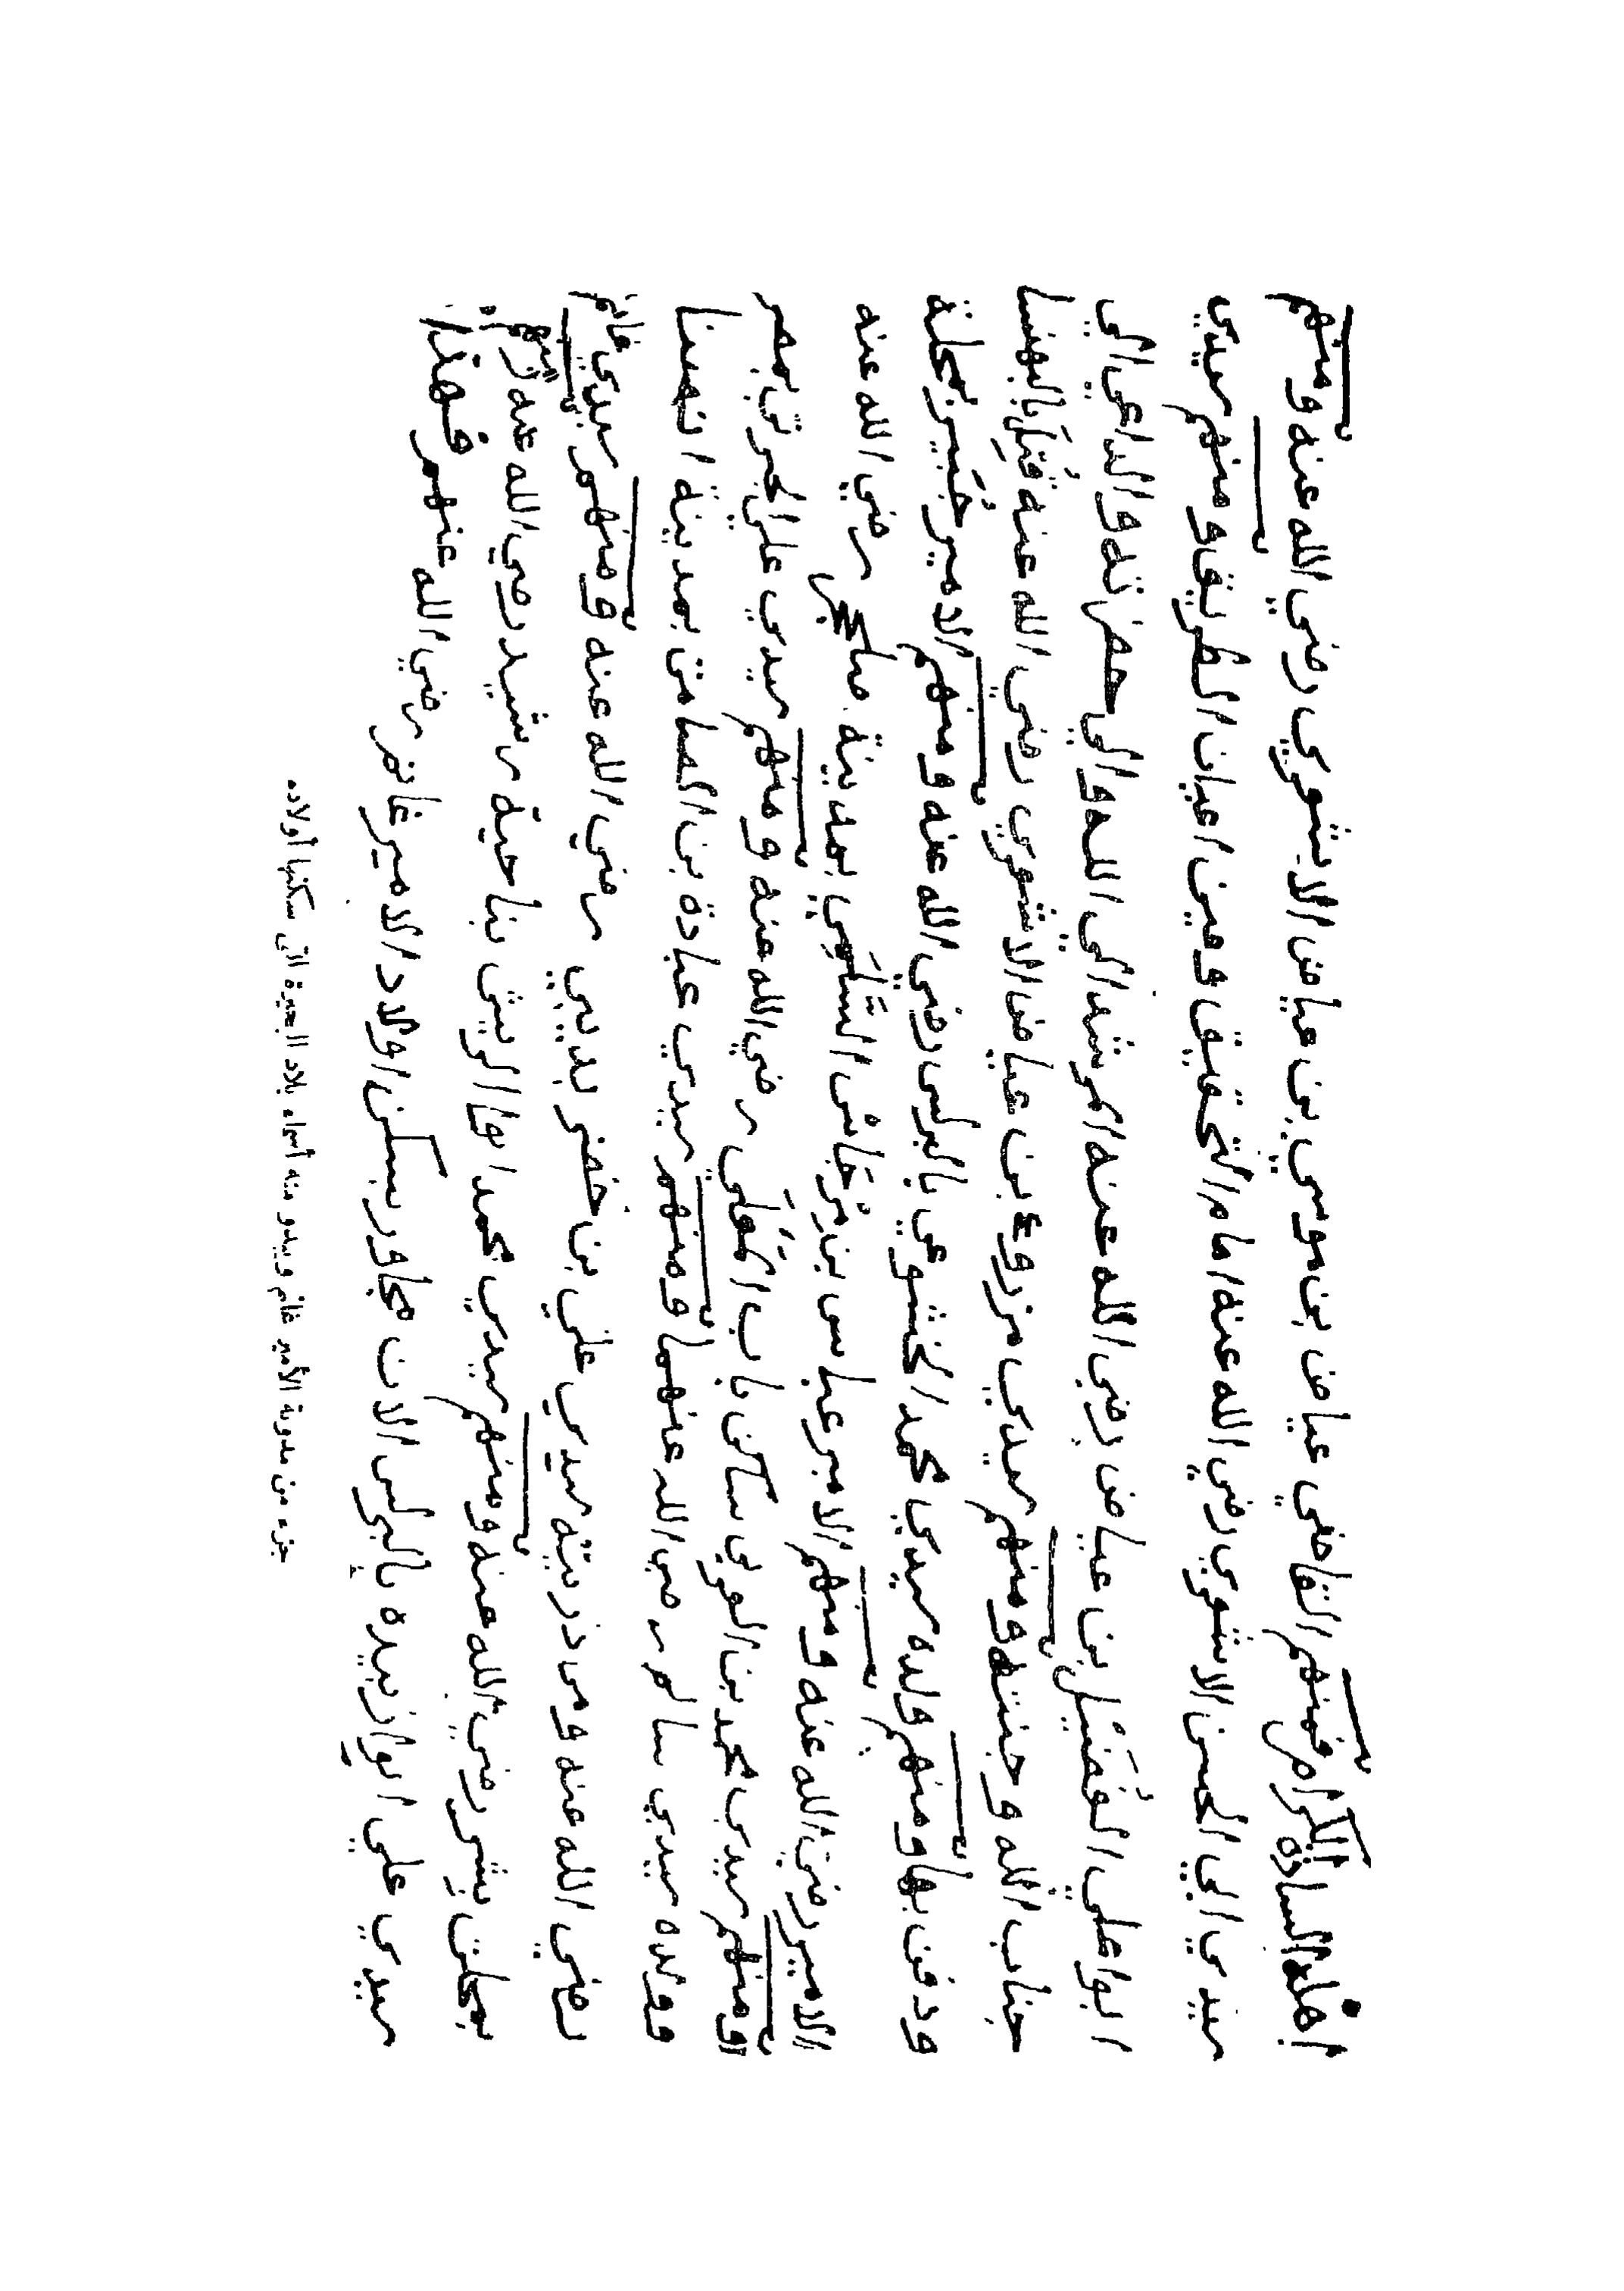 أهله السادة الكرام فمنهم القاضي عياض بن موسي بن عياض الاشعري رضي الله عنه ومنهم
سيدي ابي الحسن الاشعري رضي الله عنه امام التحقيق ومين اعيان الطريق ومنهم سيدي
ابو علي الفُضَيْل بن عياض رضي الله عنه المرشد الى الله والي حضرته والداعي الي
جناب الله وجنته ومنهم سيدي مزروع بن عياض الاشعري رضي الله عنه قُتِلَ بالبهنسا
ودفن بها ومنهم ولده سيدي محمد الخشوعي بالبرلس رضي الله عنه ومنهم الامير جُبَير بمحلة
الامير رضي الله عنه ومنهم الامير عباس بن مِرْدَاس السَّلَمِي بمدينة رضي الله عنه
ومنهم سيدي محمد بن العربي ساكن باب المُعَلَّى رضي الله عنه ومنهم سيدي علي بمصر
وولده سيدي سالم رضي الله عنهما ومنهم سيدي عبادة بن الصامت بمدينة انصنا
رضي الله عنه ومن ذريته سيدي علي بن خضر رضي الله عنه ومنهم سيدي غانم
رضي الله عنه ومنهم سيدي محمد بناحية رشيد رضي الله عنه
سيدي علي ابو ازبيده بالبرلس الان مجاور بسكن اولاد الامير غانم رضي الله عنهم فهذا
جزء من مدونة الأمير غانم ويبدو منه أسماء بلاد البحيرة التى سكنها أولاده